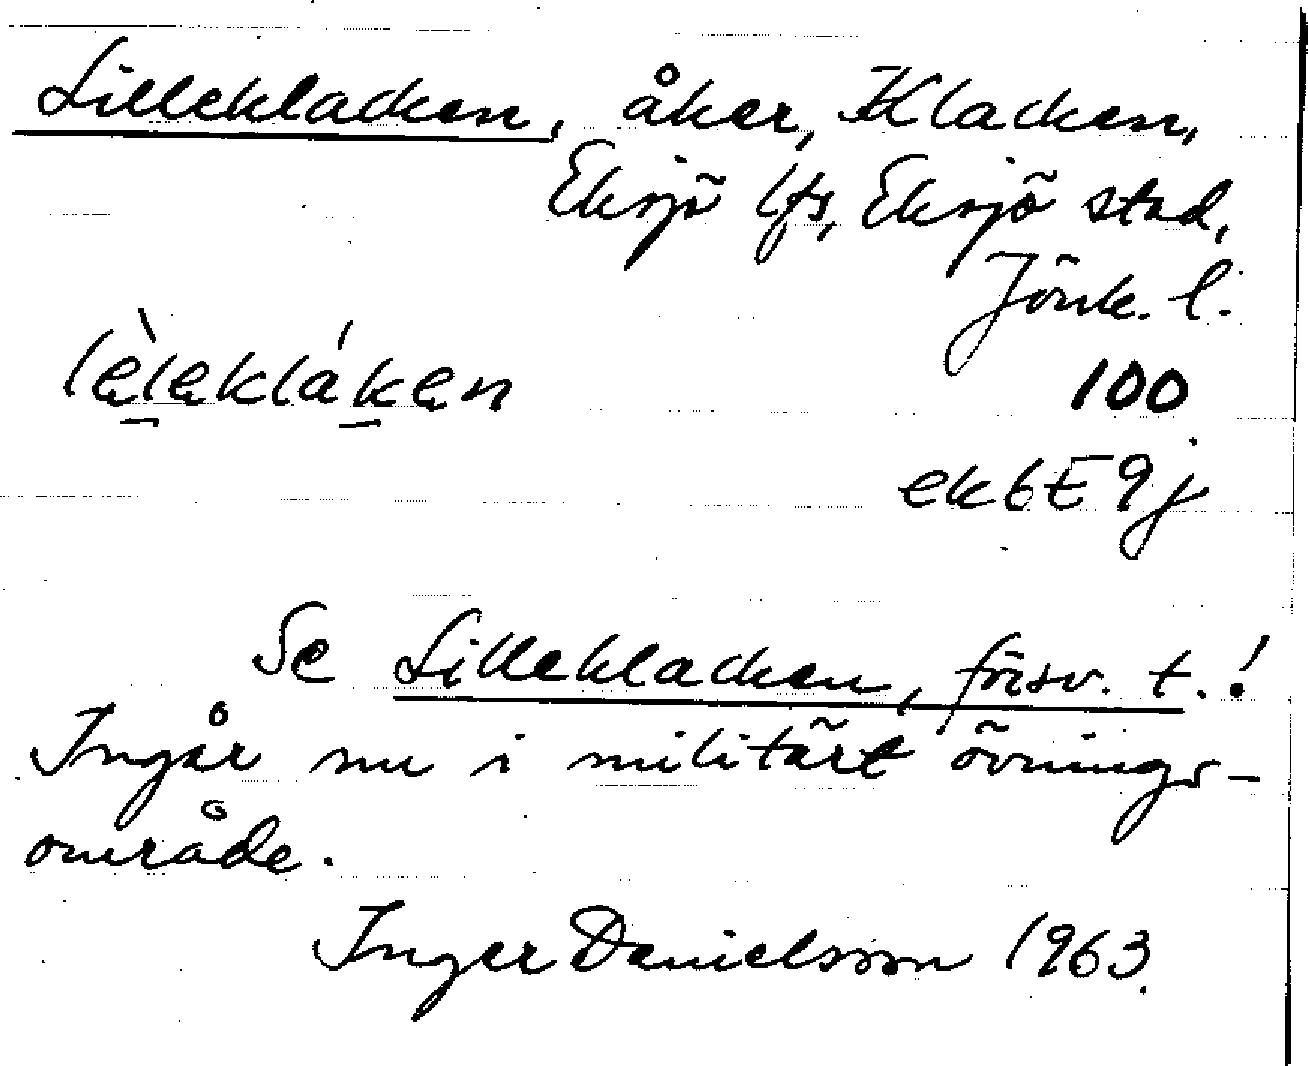 Lilleklacken, åker, Klacken,
Eksjö lfs, Eksjö stad,
Jönk. l.
lèlekláken
100
ek6E9j
Se Lilleklacken, försv. t.!
Ingår nu i militärt övnings-
område.
Inger Danielsson 1963.